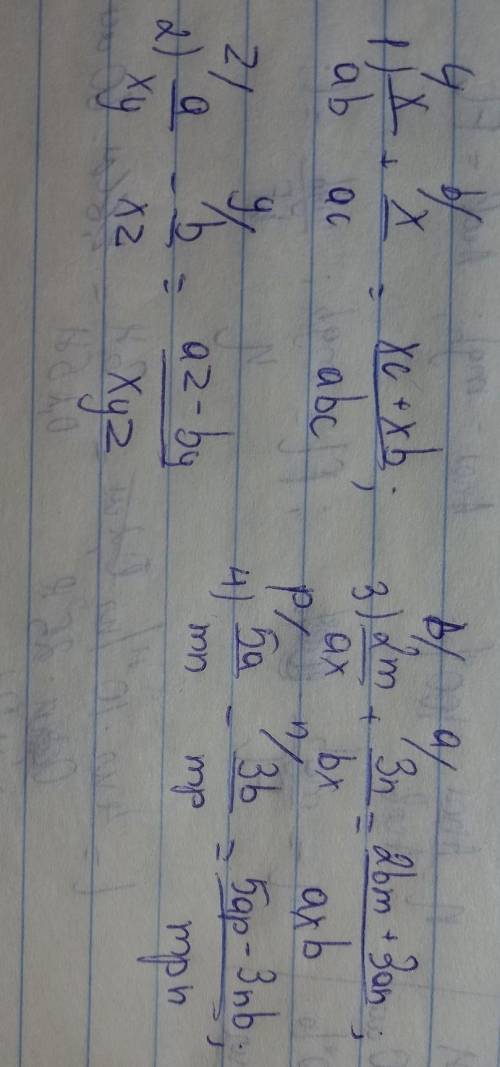 c/ b/
1) x/ab + x/ac = xc + xb/abc,
z/ y/
2) a/xy - b/xz = az - by/xyz
b/ a/
3) 2m/ax + 3n/bx = 2bm + 3an/axb,
p/ n/
4) 5a/mn - 3b/mp = 5ap - 3nb/mpn,